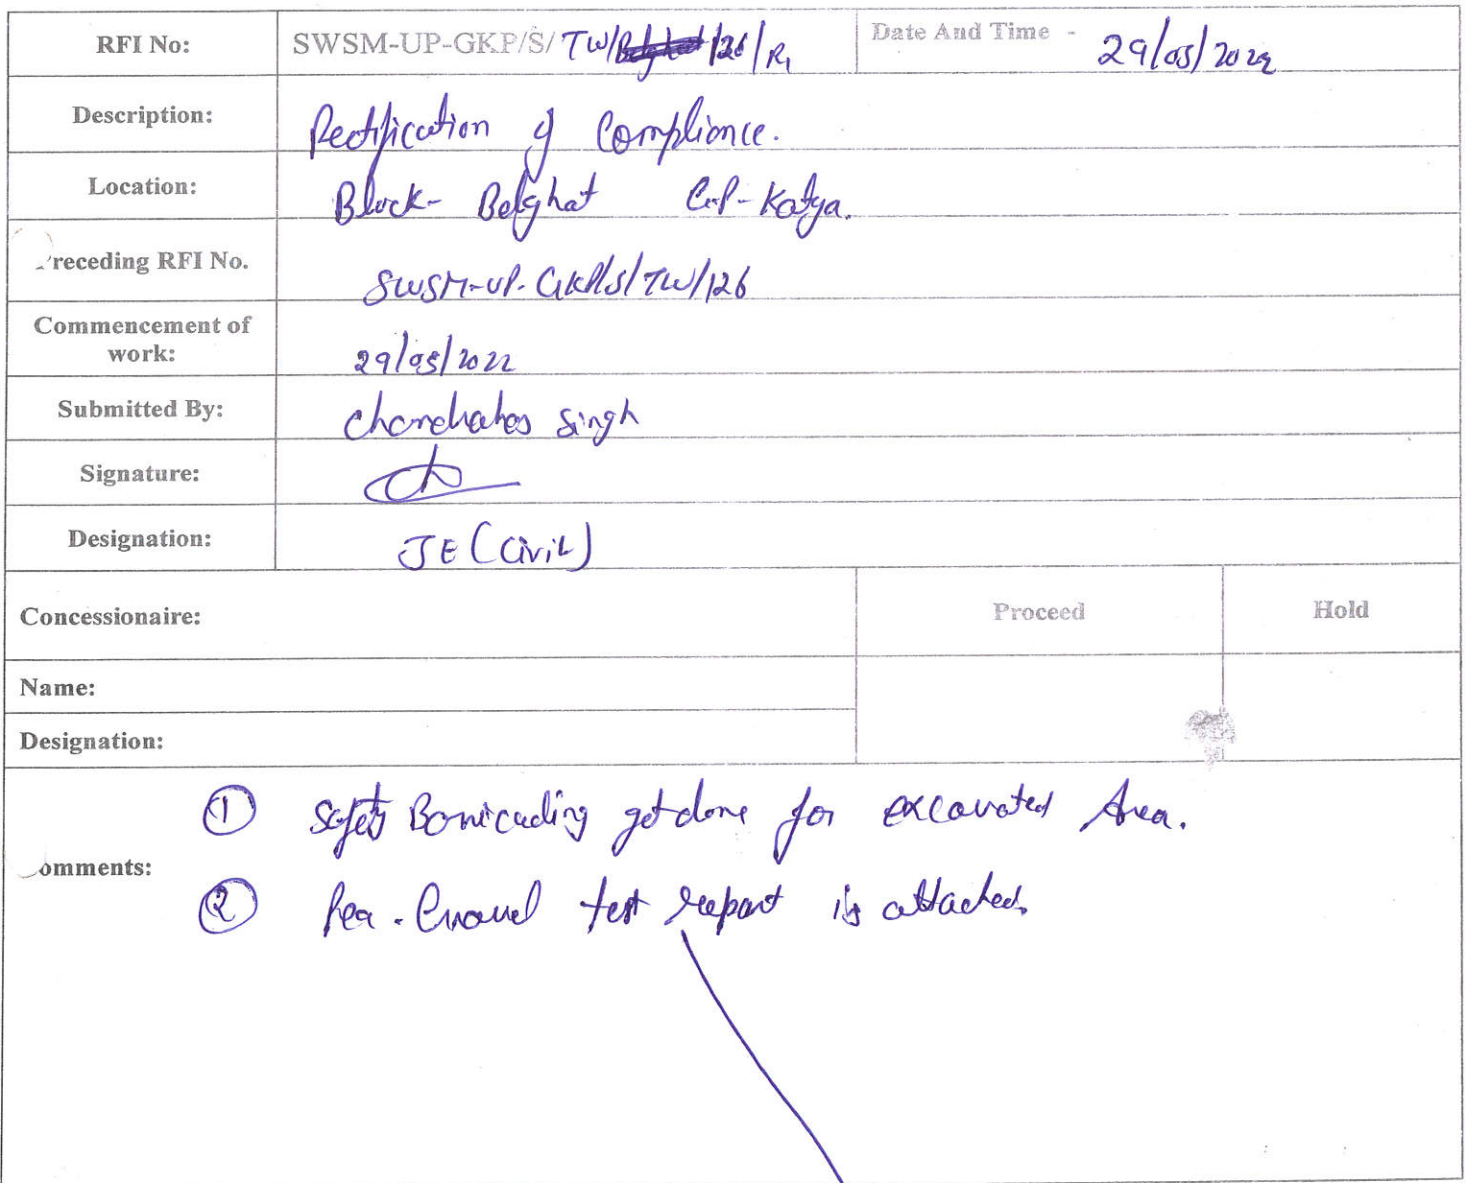 RFI No: SWSM-UP-GKP/S/ TW/ /126/R1 Date And Time - 29/05/2022
Description: Rectification of Compliance.
Location: Block- Belghat G.P-Katya.
receding RFI No. SWSM-UP-GKP/S/TW/126
Commencement of
work: 29/05/2022
Submitted By: Chandrahas Singh
Signature:
Designation: JE (Civil)
Concessionaire: Proceed Hold
Name:
Designation:
① Safety Barricading get done for excavated Area.
omments:
② Pea-Gravel test report is attached.